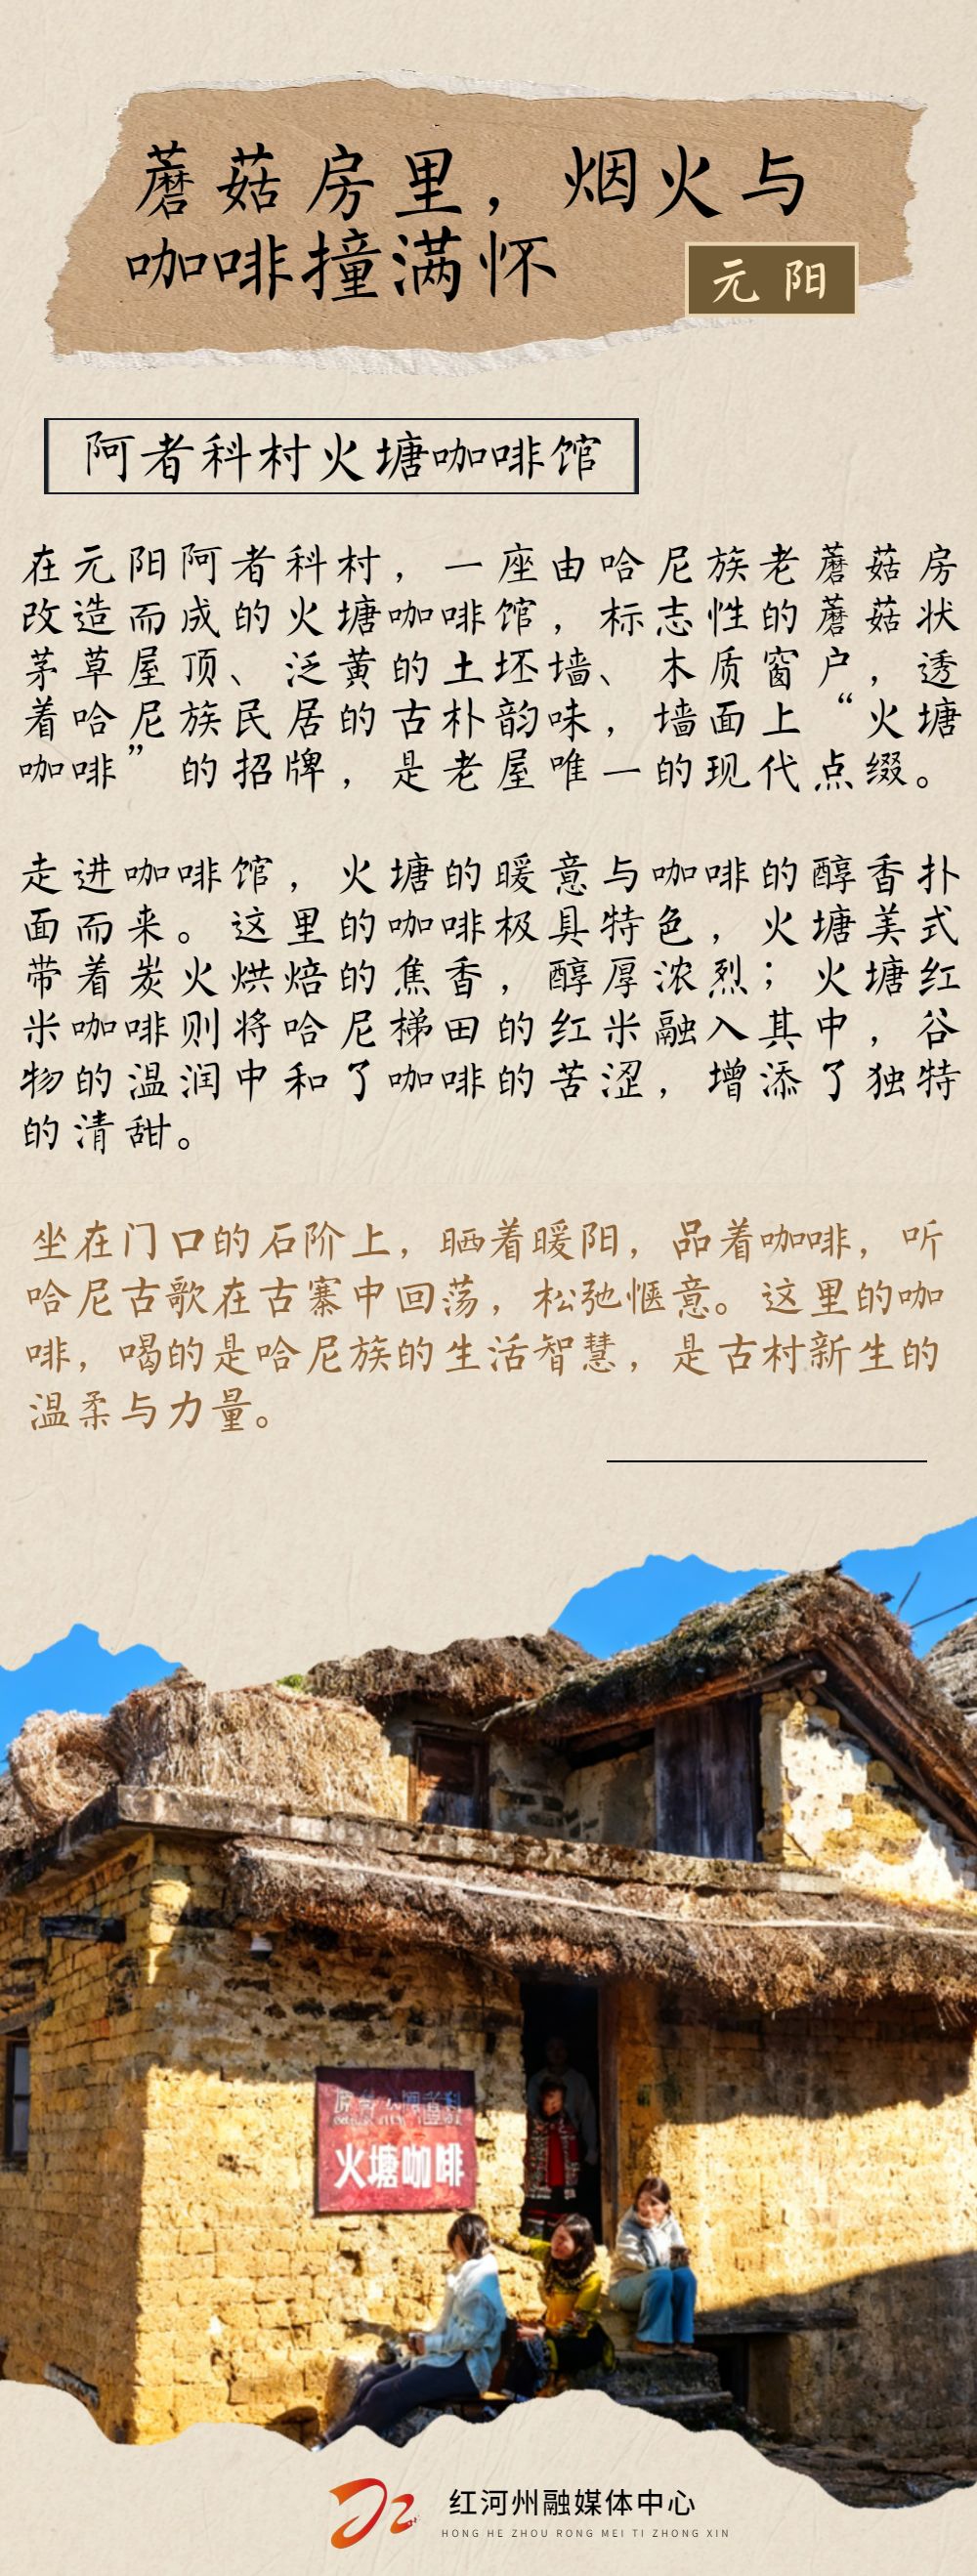 蘑菇房里，烟火与
咖啡撞满怀
元阳
阿者科村火塘咖啡馆
在元阳阿者科村，一座由哈尼族老蘑菇房
改造而成的火塘咖啡馆，标志性的蘑菇状
茅草屋顶、泛黄的土坯墙、木质窗户，透
着哈尼族民居的古朴韵味，墙面上“火塘
咖啡”的招牌，是老屋唯一的现代点缀。
走进咖啡馆，火塘的暖意与咖啡的醇香扑
面而来。这里的咖啡极具特色，火塘美式
带着炭火烘焙的焦香，醇厚浓烈；火塘红
米咖啡则将哈尼梯田的红米融入其中，谷
物的温润中和了咖啡的苦涩，增添了独特
的清甜。
坐在门口的石阶上，晒着暖阳，品着咖啡，听
哈尼古歌在古寨中回荡，松弛惬意。这里的咖
啡，喝的是哈尼族的生活智慧，是古村新生的
温柔与力量。
火塘咖啡
红河州融媒体中心
HONG HE ZHOU RONG MEI TI ZHONG XIN